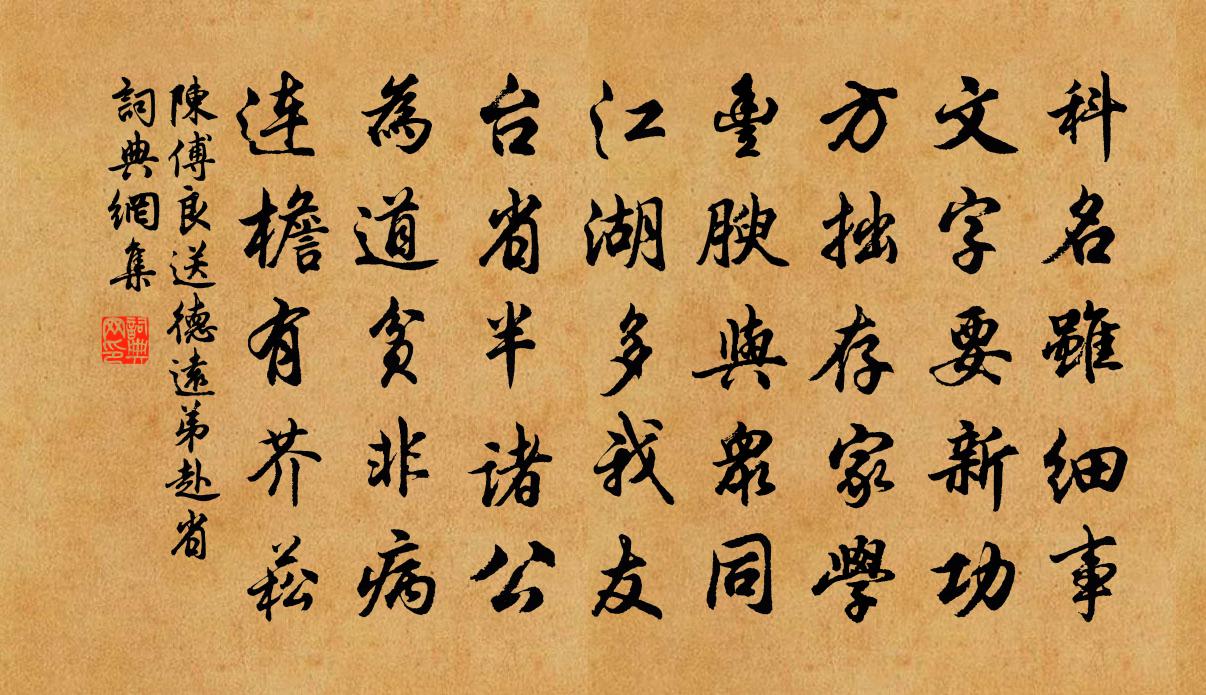 科名雖細事
文字要新功
方拙存家學
豐腴與眾同
江湖多我友
台省半諸公
為道貧非病
连檐有芥菘
陳傅良送德遠弟赴省
詞典網集
詞典网印